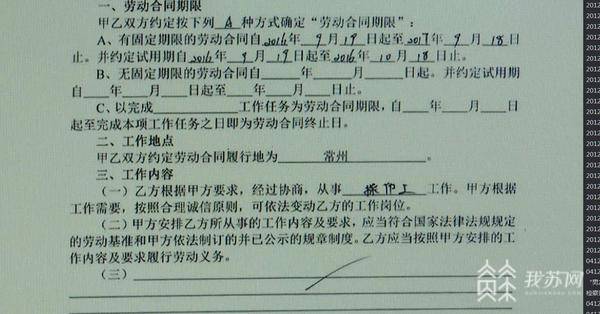 一、劳动合同期限
甲乙双方约定按下列 A 种方式确定“劳动合同期限”：
A、有固定期限的劳动合同自2016年 9月19日起至2017年 9月 18日
止。并约定试用期自2016年 9月19日起至2016年 10月 18日止。
B、无固定期限的劳动合同自____年____月____日起。并约定试用期
自____年____月____日起至____年____月____日止。
C、以完成________工作任务为劳动合同期限，自____年____月____日
起至完成本项工作任务之日即为劳动合同终止日。
二、工作地点
甲乙双方约定劳动合同履行地为 常州
三、工作内容
（一）乙方根据甲方要求，经过协商，从事 操作工 工作。甲方根据
工作需要，按照合理诚信原则，可依法变动乙方的工作岗位。
（二）甲方安排乙方所从事的工作内容及要求，应当符合国家法律法规规定
的劳动基准和甲方依法制订的并已公示的规章制度。乙方应当按照甲方安排的工
作内容及要求履行劳动义务。
（三）
我苏网